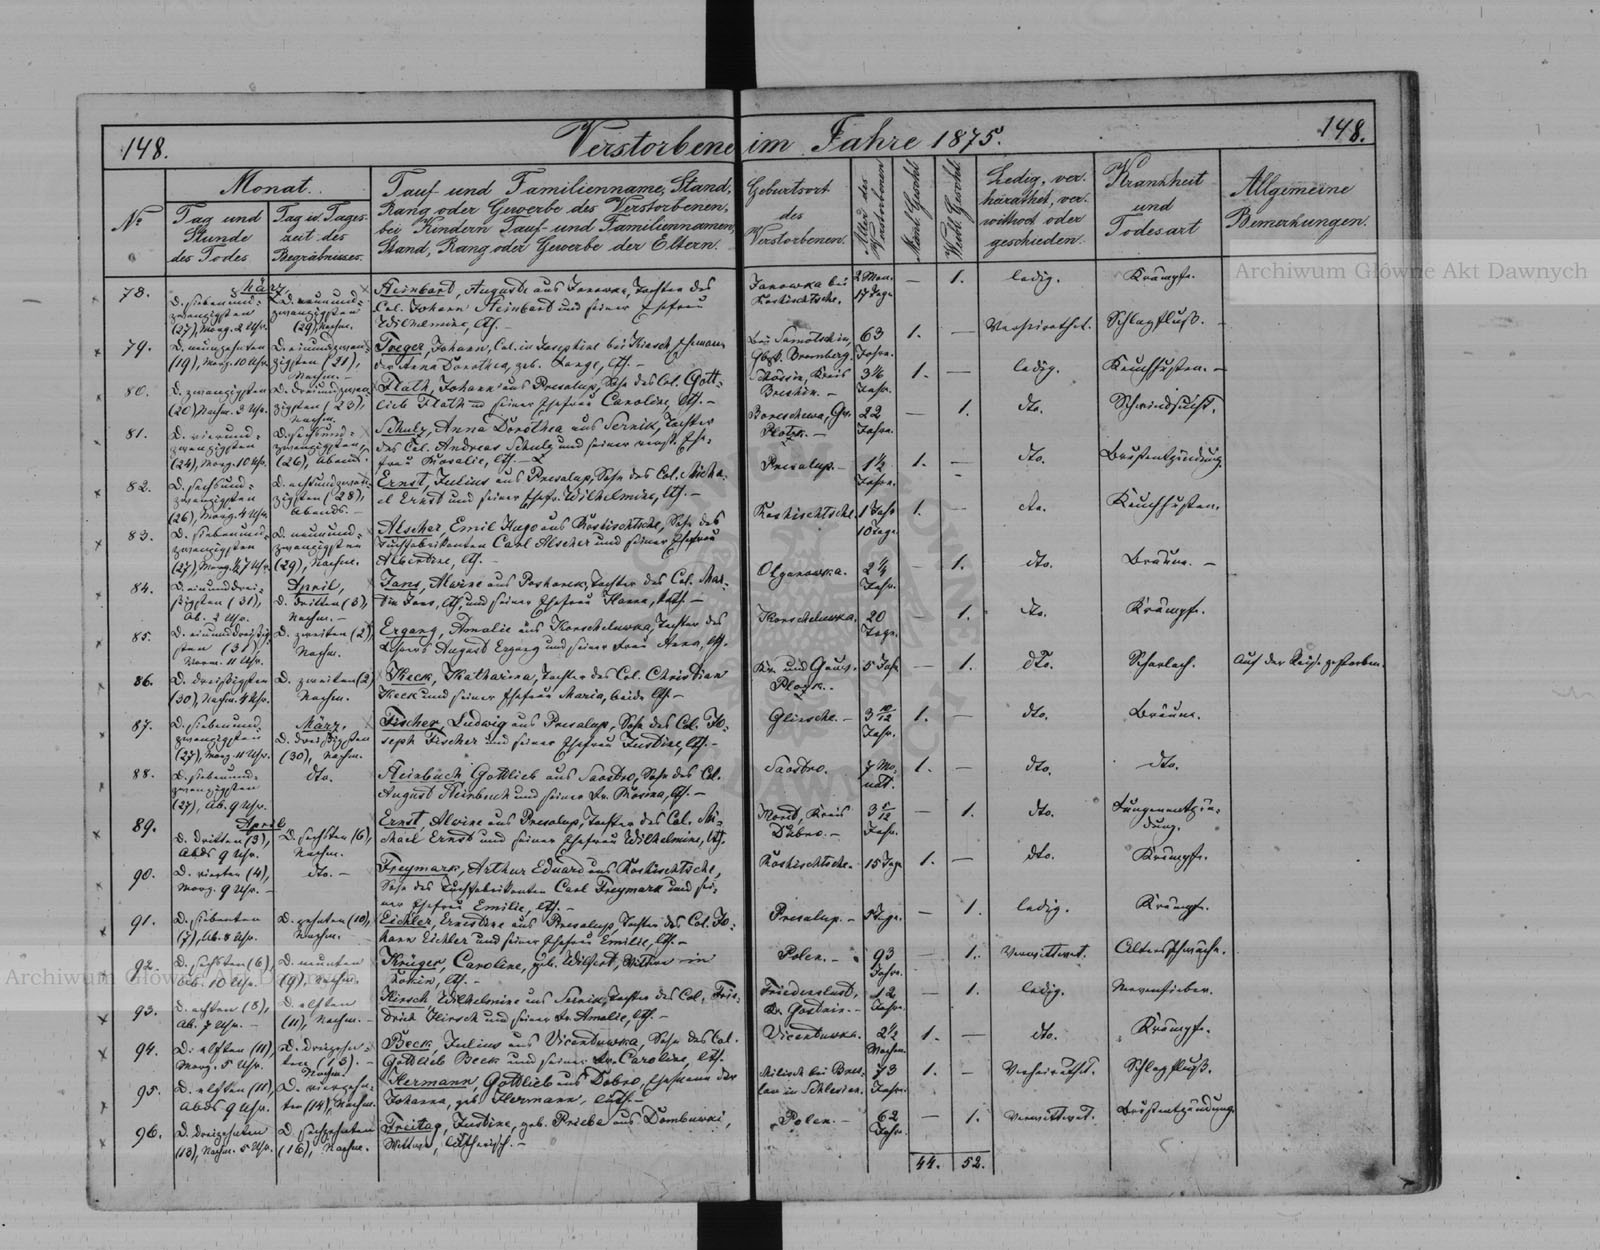 148.
Verstorbene im Jahre 1875.
148.
No
Monat.
Tag und
Stunde
des Todes
Tag u. Tages-
zeit des
Begräbnisses.
Tauf und Familienname, Stand,
Rang oder Gewerbe des Verstorbenen,
bei Kindern Tauf- und Familiennamen,
Stand, Rang oder Gewerbe der Eltern.
Geburtsort
des
Verstorbenen.
Alter des
Verstorbenen
Mänl. Geschl.
Weibl. Geschl.
Ledig, ver-
heirathet, ver-
wittwet oder
geschieden.
Krankheit
und
Todesart
Allgemeine
Bemerkungen.
78.
März
d. siebenund-
zwanzigsten
(27), Morg. 2 Uhr.
d. neunund-
zwanzigsten
(29), Nachm.
Steinbart, Auguste aus Janowka, Tochter des
Col. Johann Steinbart und seiner Ehefrau
Wilhelmine, luth. –
Janowka bei
2 Mon.
17 Tage
– 1.
ledig.
Krämpfe.
79.
D. neunzehnten
(19), Morg. 10 Uhr.
D. einundzwan-
zigsten (21),
Nachm.
Treger, Johann, Col. in
der Anna Dorothea, geb. Lange, luth. –
Bei Samotschin,
Gbzk. Bromberg.
63
Jahre.
1. –
Verheirathet.
Schlagfluß. –
80.
D. zwanzigsten
(20) Nachm. 3 Uhr.
D. dreiundzwan-
zigsten (23),
Nachm.
Flath, Johann aus Presalup, Sohn des Col. Gott-
lieb Flath und seiner Ehefrau Caroline, luth. –
Kreis
Jahr.
1. –
ledig.
Keuchhusten. –
81.
D. vierund-
zwanzigsten
(24), Morg. 10 Uhr.
D. sechsund-
zwanzigsten,
(26), Abends.
Schulz, Anna Dorothea aus Sernik, Tochter
des Col. Andreas Schulz und seiner verst. Ehe-
frau Rosalie, luth. –
22
Jahre.
– 1.
dto.
Schwindsucht.
82.
D. sechsund-
zwanzigsten
(26), Morg. 4 Uhr.
D. achtundzwan-
zigsten (28),
Abends. –
Ernst, Julius aus Presalup, Sohn des Col. Micha-
el Ernst und seiner Ehefr. Wilhelmine, luth. –
Presalup. –
1½
Jahre.
1. –
dto.
Brustentzündung.
83.
D. siebenund-
zwanzigsten
(27), Morg. ½ 7 Uhr.
D. neunund-
zwanzigsten
(29), Nachm.
Alscher, Emil Hugo aus Roskischtsche, Sohn des
Tuchfabrikanten Carl Alscher und seiner Ehefrau
Albertine, luth. –
Roskischtsche
1 Jahr
10 Tage.
1. –
dto.
Keuchhusten.
84.
D. einunddrei-
ßigsten (31),
Ab. 2 Uhr.
April,
d. dritten (3),
Nachm. –
Jans, Alvine aus Tochter des Col. Mar-
tin Jans, luth., und seiner Ehefrau Hanna, kath. –
Olganowka.
2¼
Jahr.
– 1.
dto.
Bräune. –
85.
D. einunddreißig-
sten (31),
Vorm. 11 Uhr.
D. zweiten (2),
Nachm.
Ergang, Amalie aus Horscheluwka, Tochter des
August Ergang und seiner Frau Anna, luth.
Horscheluwka.
20
Tage.
– 1.
dto.
Krämpfe.
86.
D. dreißigsten
(30), Nachm. 4 Uhr.
D. zweiten (2)
Nachm.
Keck, Katharina, Tochter des Col. Christian
Keck und seiner Ehefrau Maria, beide luth. –
Kr. und Gouv.
Plozk.
5 Jahr
– 1.
dto.
Scharlach.
Auf der Reise gestorben.
87.
D. siebenund-
zwanzigsten
(27), Morg. 11 Uhr.
März.
D. dreißigsten
(30), Nachm.
Fischer, Ludwig aus Presalup, Sohn des Col. Jo-
seph Fischer und seiner Ehefrau Justine, luth. –
3 10/12
Jahr.
1. –
dto.
Bräune.
88.
D. siebenund-
zwanzigsten
(27), Ab. 9 Uhr.
dto.
Steinbuch Gottlieb aus Saostro, Sohn des Col.
August Steinbuch und seiner Fr. Rosina, luth. –
Saostro.
7 Mo-
nat.
1. –
dto.
dto.
89.
April
d. dritten (3),
Abds 9 Uhr.
D. sechsten (6),
Nachm.
Ernst, Alvine aus Presalup, Tochter des Col. Mi-
chael Ernst und seiner Ehefrau Wilhelmine, luth.
Kreis
Dubno. –
Jahr.
– 1.
dto.
Lungenentzün-
dung.
90.
D. vierten (4),
Morg. 9 Uhr. –
dto. –
Freymark, Arthur Eduard aus Roskischtsche,
Sohn des Tuchfabrikanten Carl Freymark und sei-
ner Ehefrau Emilie, luth. –
Roskischtsche. –
15 Tage
1. –
dto.
Krämpfe.
91.
D. siebenten
(7), Ab. 8 Uhr.
D. zehnten (10),
Nachm.
Eichler, Ernestine aus Presalup, Tochter des Col. Jo-
hann Eichler und seiner Ehefrau Emilie, luth. –
Presalup. –
Tage.
– 1.
ledig.
Krämpfe.
92.
D. sechsten (6),
Ab. 10 Uhr.
D. neunten
(9), Nachm.
Krüger, Caroline, geb. Wittwe in
luth. –
Polen. –
93
Jahre.
– 1.
Verwittwet.
Altersschwäche.
93.
d. achten (8),
Ab. 7 Uhr. –
d. elften
(11), Nachm. –
Hirsch Wilhelmine aus Sernik, Tochter des Col. Frie-
drich Hirsch und seiner Fr. Amalie, luth. –
Friedenslust,
Kr. Gostnin. –
12
Jahre.
– 1.
ledig.
Nervenfieber.
94.
D. elften (11),
Morg. 5 Uhr.
D. dreizehn-
ten (13). –
Nachm.
Beck, Julius aus Vicentuwka, Sohn des Col.
Gottlieb Beck und seiner Fr. Caroline, luth. –
Vicentuwka.
2½
Wochen
1. –
dto.
Krämpfe.
95.
D. elften (11),
Abds 9 Uhr.
D. vierzehn-
ten (14), Nachm.
Hermann, Gottlieb aus Dobro, Ehemann der
Johanna, geb. Hermann, luth. –
Milisch bei Bres-
lau in Schlesien.
73
Jahre.
1. –
Verheirathet.
Schlagfluß.
96.
D. dreizehnten
(13), Nachm. 5 Uhr.
D. sechzehnten
(16), Nachm.
Freitag, Justine, geb. Priebe aus Dombuwki,
Wittwe, lutherisch. –
Polen. –
62
Jahr.
– 1.
Verwittwet.
Brustentzündung.
44. 52.
Archiwum Główne Akt Dawnych
Archiwum Główne Akt Dawnych